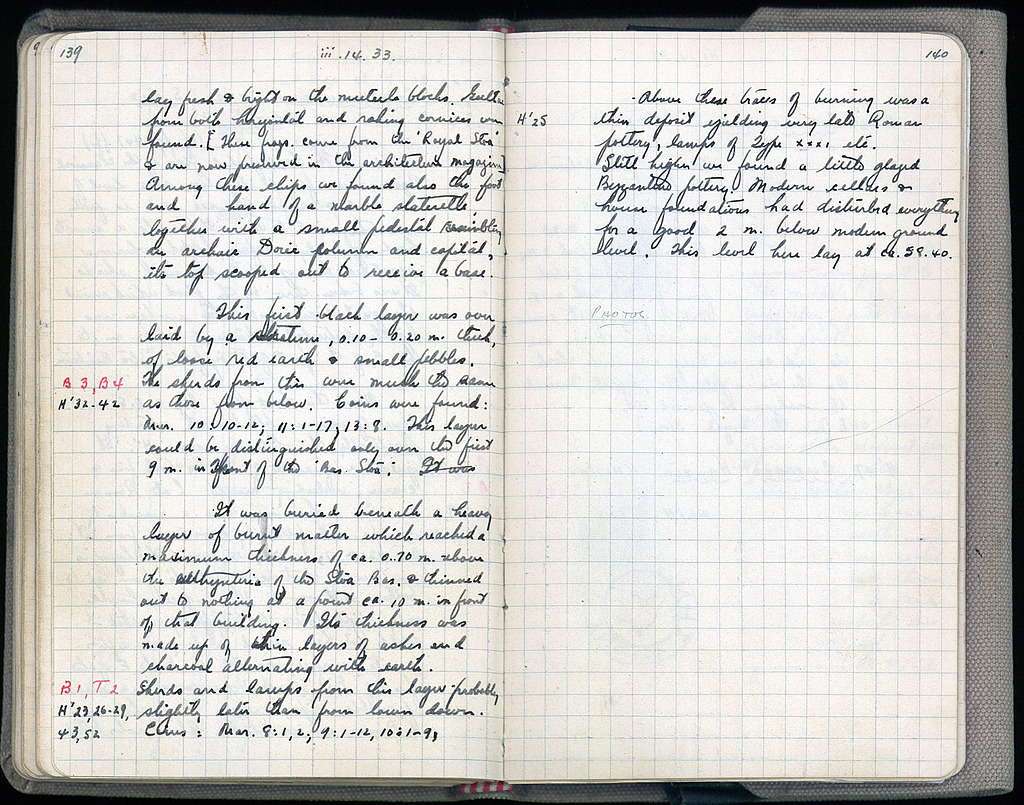 139
iii.14.33.
lay fresh & bright on the muteule blocks.
from both horizontal and raking cornices were
found. [These frags. come from the 'Royal Stoa'
& are now preserved in the architecture magazine]
Among these chips we found also the foot
and hand of a marble statuette
together with a small pedestal resembling
an archaic Doric column and capital,
its top scooped out to receive a base.
This first black layer was over
laid by a stratum, 0.10 - 0.20 m. thick,
of loose red earth & small pebbles.
B 3, B 4
The sherds from this were much the same
H'32-42
as those from below. Coins were found:
Mar. 10: 10-12; 11: 1-17; 13: 8. This layer
could be distinguished only over the first
9 m. in front of the 'Bas. Stoa'. It was
It was buried beneath a heavy
layer of burnt matter which reached a
maximum thickness of ca. 0.70 m. above
the euthynteria of the Stoa Bas. & thinned
out to nothing at a point ca. 10 m. in front
of that building. Its thickness was
made up of thin layers of ashes and
charcoal alternating with earth.
B 1, T 2
Sherds and lamps from this layer probably
H'23, 26-29,
slightly later than from lower down.
43, 52
Coins: Mar. 8: 1, 2; 9: 1-12, 10: 1-9;
140
Above these traces of burning was a
H'25
thin deposit yielding very late Roman
pottery, lamps of Type xxxi etc.
Still higher we found a little glazed
Byzantine pottery. Modern cellars &
house foundations had disturbed everything
for a good 2 m. below modern ground
level. This level here lay at ca. 58.40.
PHOTOS